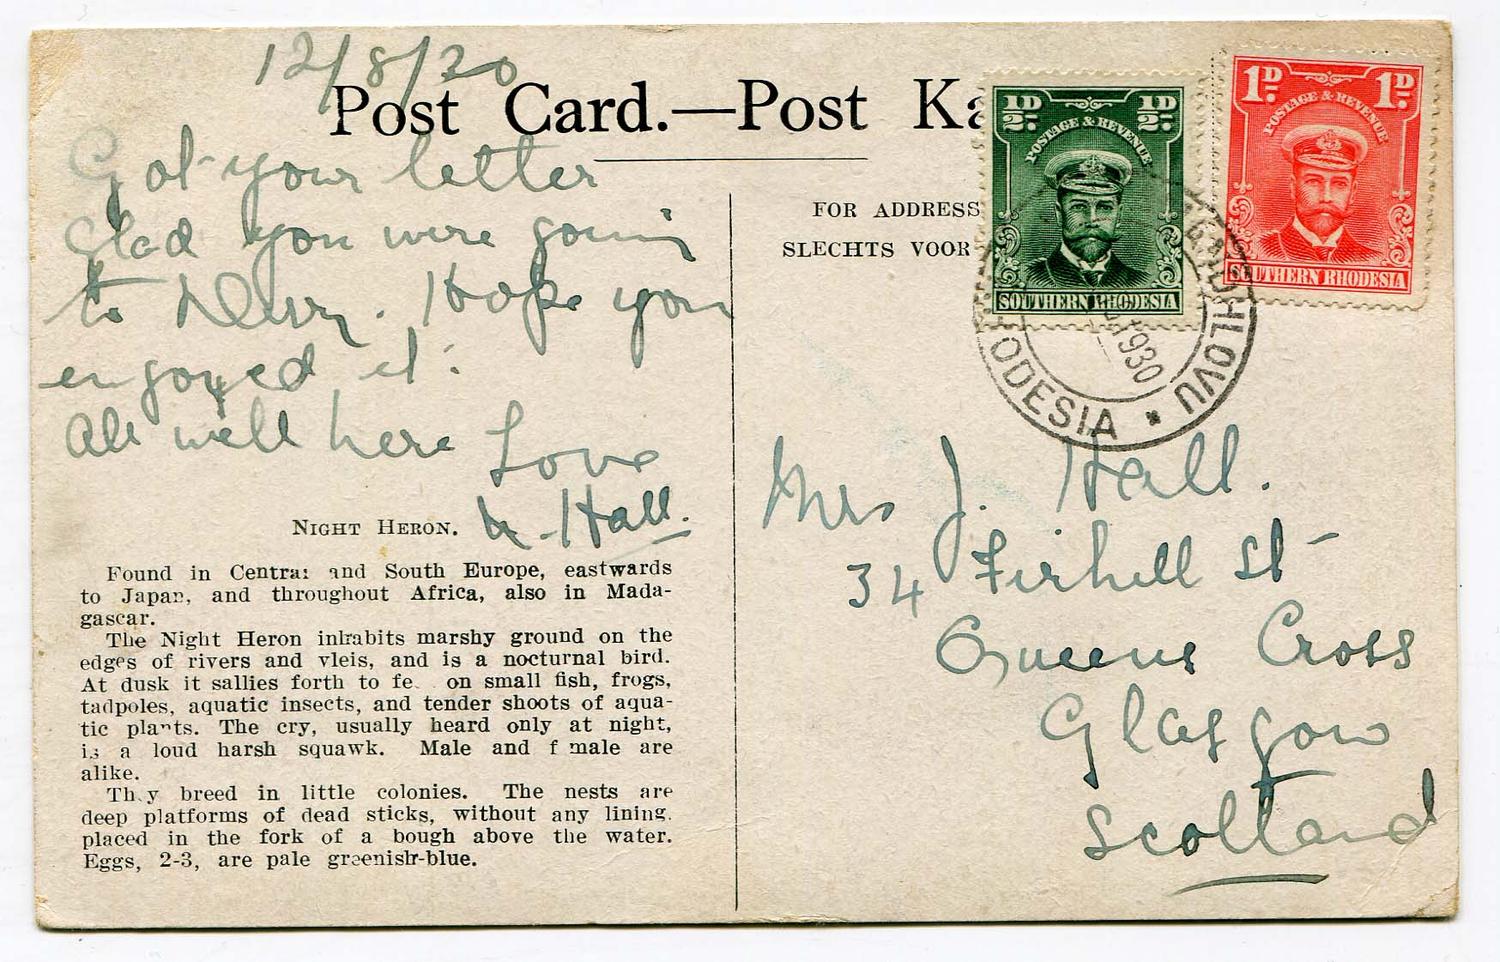 12/8/30
Post Card.—Post Ka
Got your letter
Glad you were going
to Derry. Hope you
enjoyed it.
All well here
Love
Hall.
NIGHT HERON.
Found in Central and South Europe, eastwards
to Japan, and throughout Africa, also in Mada-
gascar.
The Night Heron inhabits marshy ground on the
edges of rivers and vleis, and is a nocturnal bird.
At dusk it sallies forth to fe on small fish, frogs,
tadpoles, aquatic insects, and tender shoots of aqua-
tic plants. The cry, usually heard only at night,
is a loud harsh squawk. Male and f male are
alike.
Th y breed in little colonies. The nests are
deep platforms of dead sticks, without any lining,
placed in the fork of a bough above the water.
Eggs, 2-3, are pale greenish-blue.
FOR ADDRESS
SLECHTS VOOR
½D ½D
POSTAGE & REVENUE
SOUTHERN RHODESIA
1D. 1D.
POSTAGE & REVENUE
SOUTHERN RHODESIA
1930
RHODESIA
Mrs J. Hall.
34 Firhill St
Queens Cross
Glasgow
Scotland